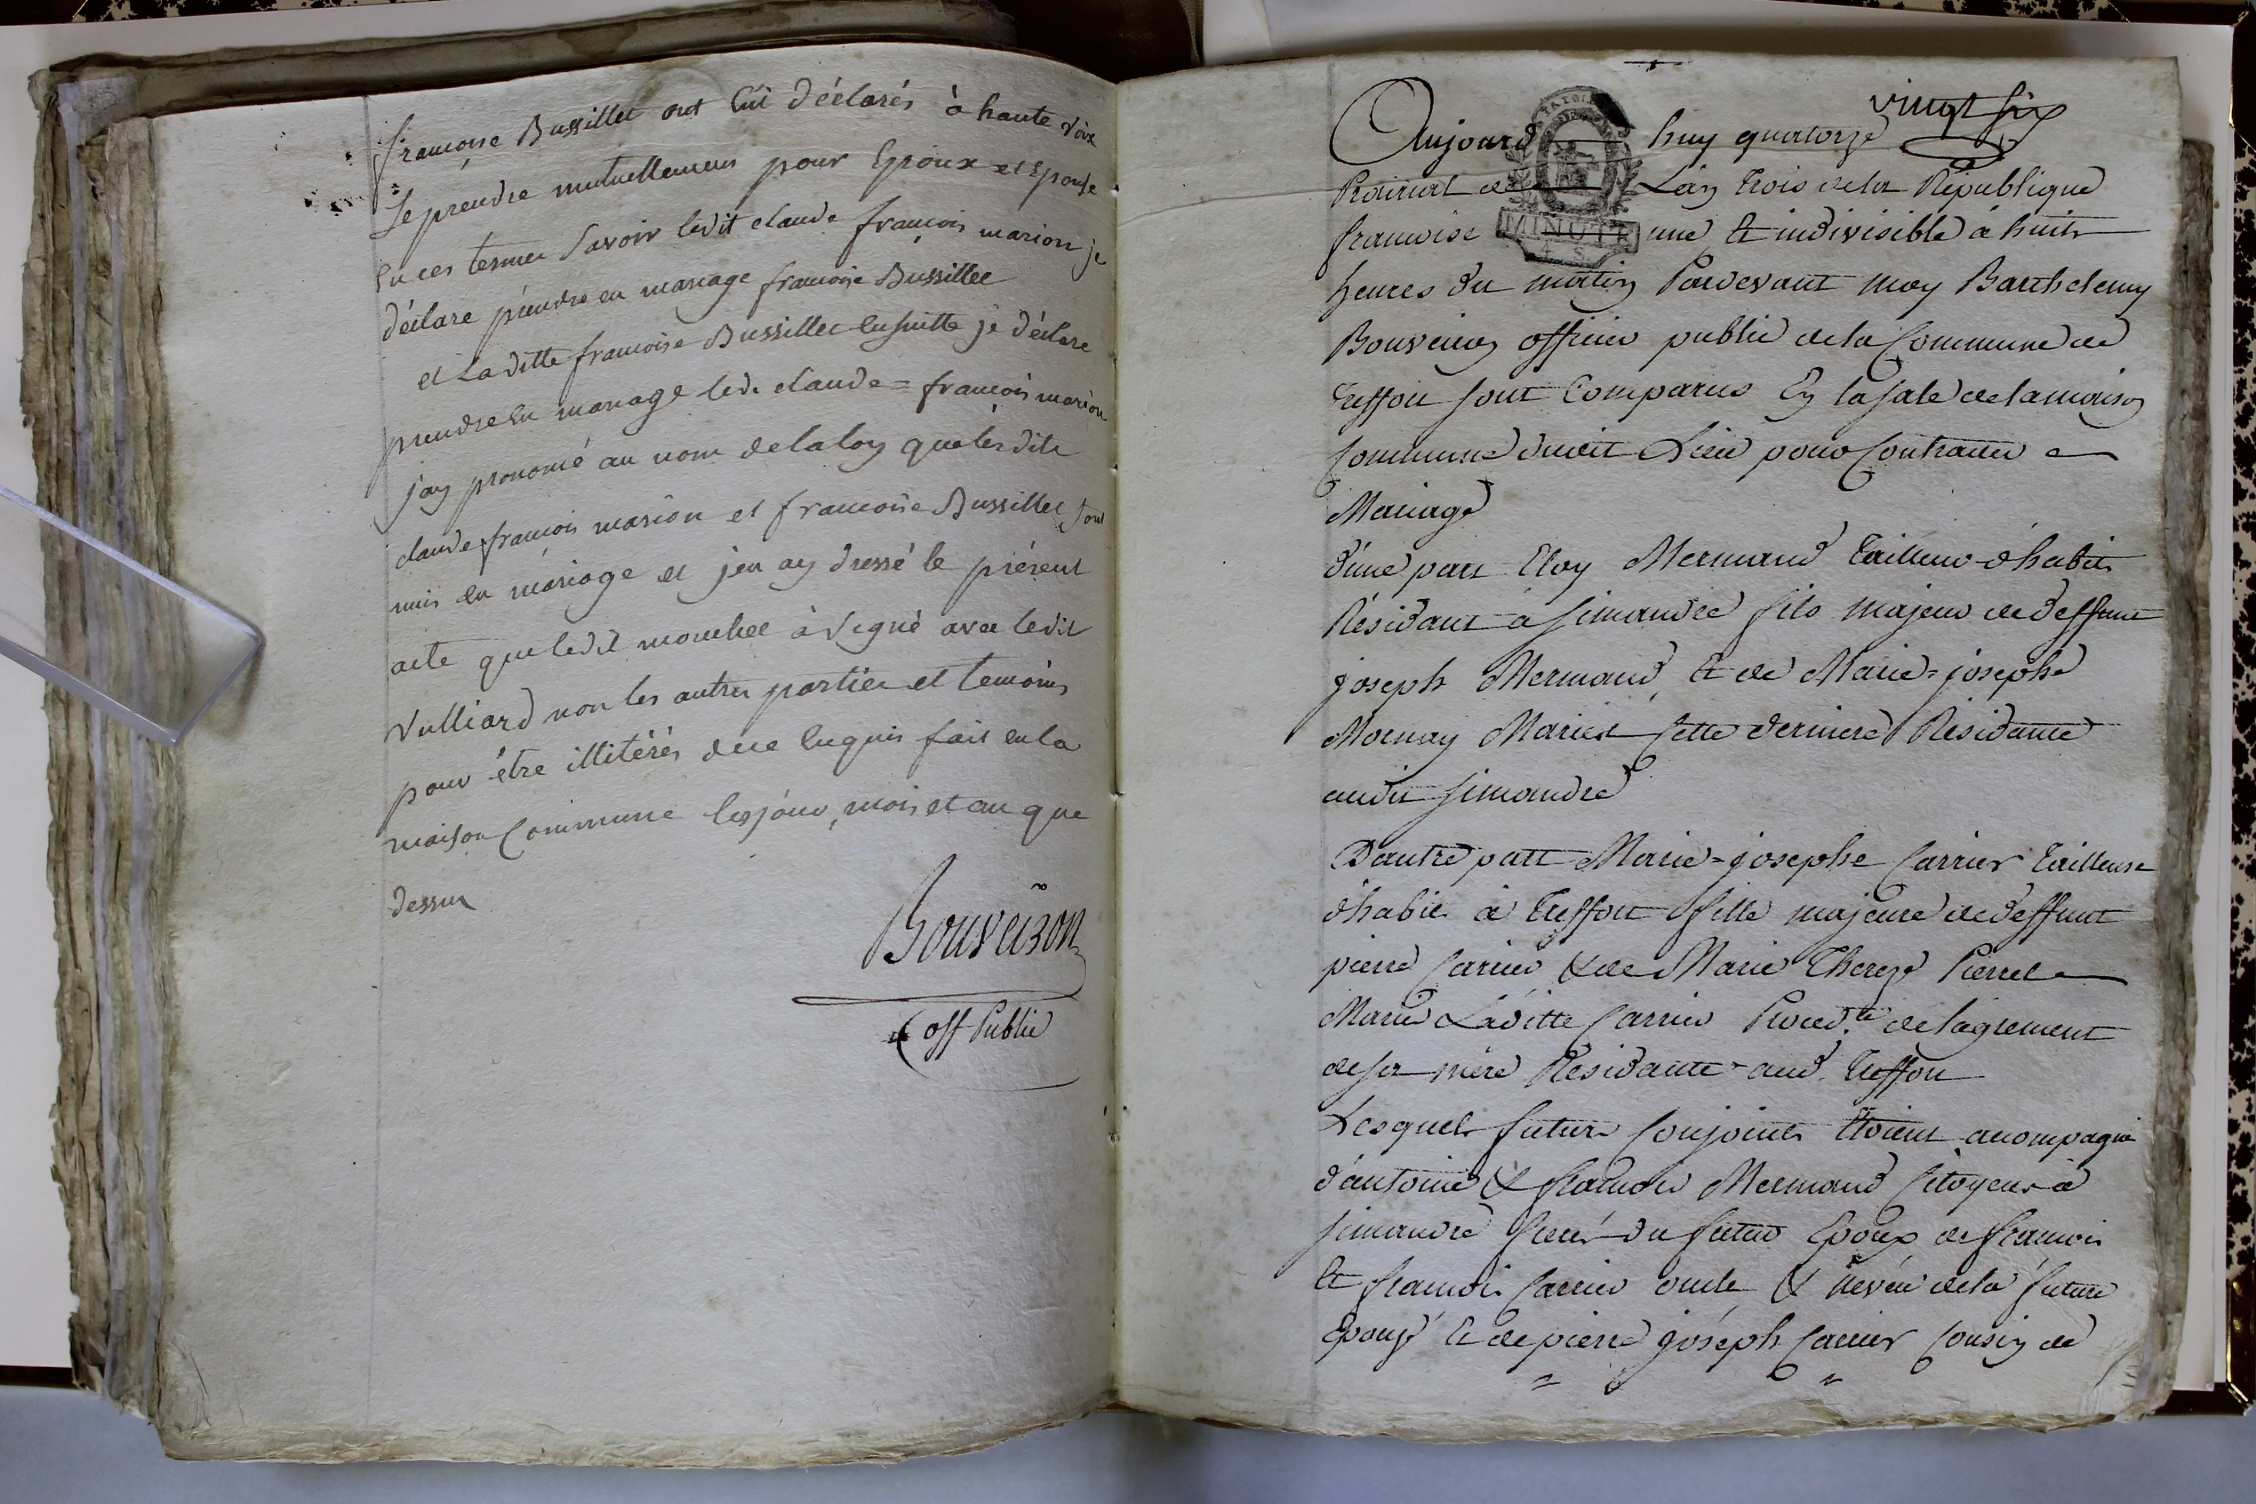 francoise Bussillet ont Eùi déclarés à haute voix
Se prendre mutuellement pour Epoux et Epouse
En ces termes Savoir ledit claude francois marion je
déclare prendre en mariage francoise Bussillet
et Laditte francoise Bussillet Ensuitte je déclare
prendre En mariage led. claude = francois marion
j'ay prononcé au nom de la loy que lesdits
claude francois marion et francoise Bussillet sont
unis en mariage et j'en ay dressé le présent
acte que ledit mouchet à Signé avec ledit
Vulliard non les autres parties et temoins
pour être illitérés de ce Enquis fait en la
maison Commune les jour, mois et an que
dessus
Bouveiron
off Public
vingt six
Aujourd huy quatorze
Prairial de Lan trois de la République
francoise une Et indivisible à huits
MINUTE
heures du matin Pardevant moy Barthelemy
Bouveiron officier public de la Commune de
Treffort sont Comparus En la sale de la maison
Commune dudit Lieu pour Contracter
Mariage
d'une part Eloy Mermand Tailleur d'habits
Résidant à Simandre fils majeur de deffunt
joseph Mermand, Et de Marie = josephe
Mornay Mariés Cette derniere Résidante
audit Simandre
D'autre part Marie = josephe Carrier Tailleuse
d'habits à Treffort fille majeure de deffunt
pierre Carrier & de Marie Thereze Pierrel
Mariés Laditte Carrier Proced.te de lagrement
de sa mère Résidante aud. Treffort
Lesquels futurs Conjoints Etoient acompagné
d'antoine & francois Mermand Citoyens à
Simandre freres du futur Epoux de francois
Et francois Carrier oncle & neveu de la future
Epouse Et de pierre joseph Carrier Cousin de